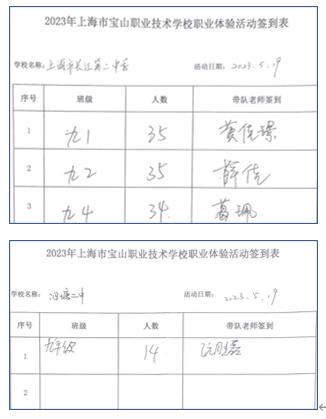 2023年上海市宝山职业技术学校职业体验活动签到表
学校名称：上海市长江第二中学 活动日期：2023.5.19
序号 班级 人数 带队老师签到
1 九1 35 黄佳璟
2 九2 35 薛佳
3 九4 34 葛珮
2023年上海市宝山职业技术学校职业体验活动签到表
学校名称：泗塘二中 活动日期：2023.5.19
序号 班级 人数 带队老师签到
1 九年级 14
2